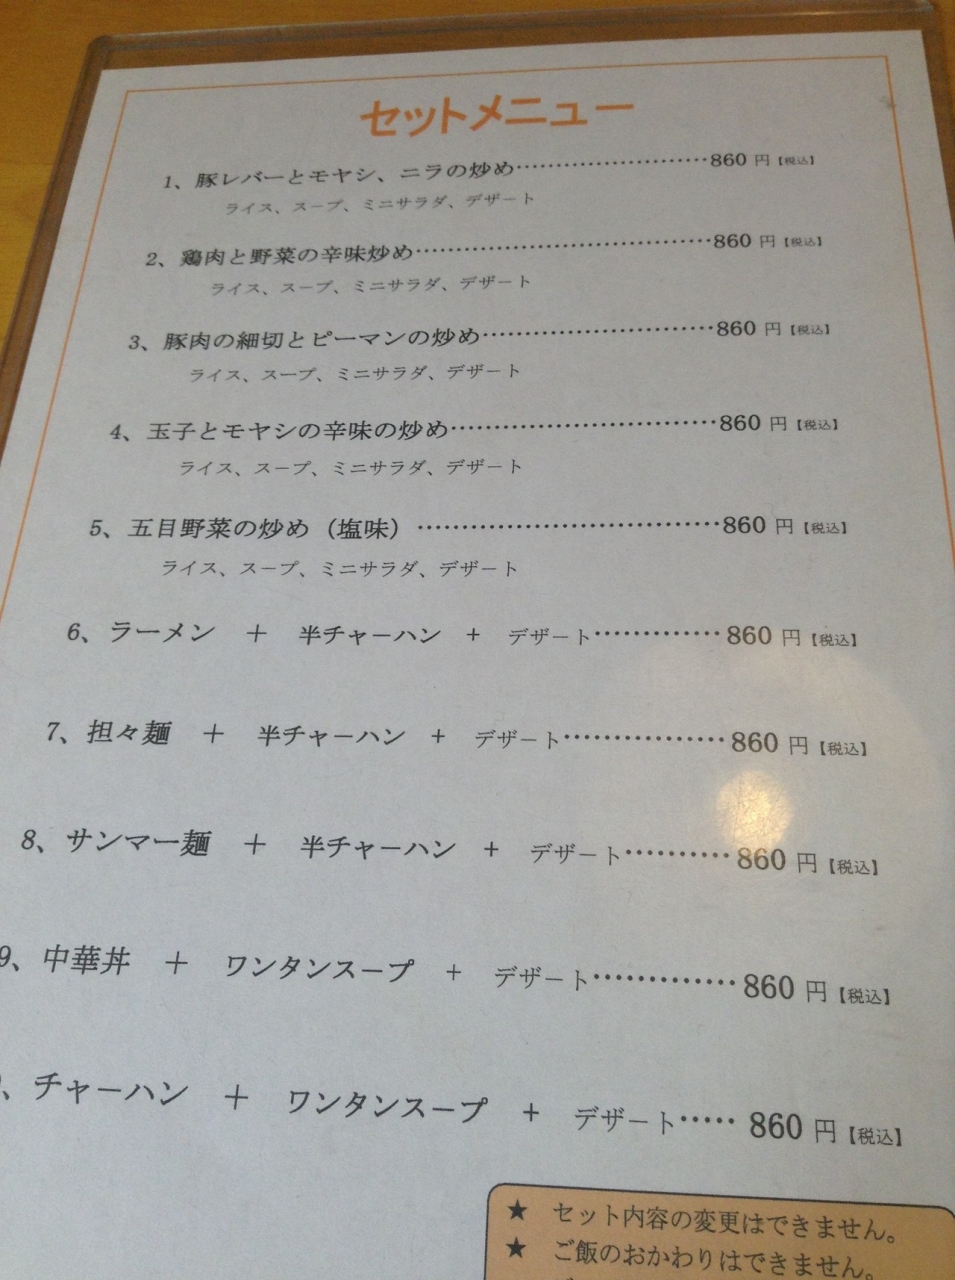 セットメニュー
1、豚レバーとモヤシ、ニラの炒め……………………860 円【税込】
ライス、スープ、ミニサラダ、デザート
2、鶏肉と野菜の辛味炒め………………………………860 円【税込】
ライス、スープ、ミニサラダ、デザート
3、豚肉の細切とピーマンの炒め………………………860 円【税込】
ライス、スープ、ミニサラダ、デザート
4、玉子とモヤシの辛味の炒め…………………………860 円【税込】
ライス、スープ、ミニサラダ、デザート
5、五目野菜の炒め（塩味）……………………………860 円【税込】
ライス、スープ、ミニサラダ、デザート
6、ラーメン ＋ 半チャーハン + デザート…………860 円【税込】
7、担々麺 ＋ 半チャーハン + デザート……………860 円【税込】
8、サンマー麺 ＋ 半チャーハン + デザート………860 円【税込】
9、中華丼 ＋ ワンタンスープ + デザート…………860 円【税込】
、チャーハン ＋ ワンタンスープ + デザート……860 円【税込】
★ セット内容の変更はできません。
★ ご飯のおかわりはできません。